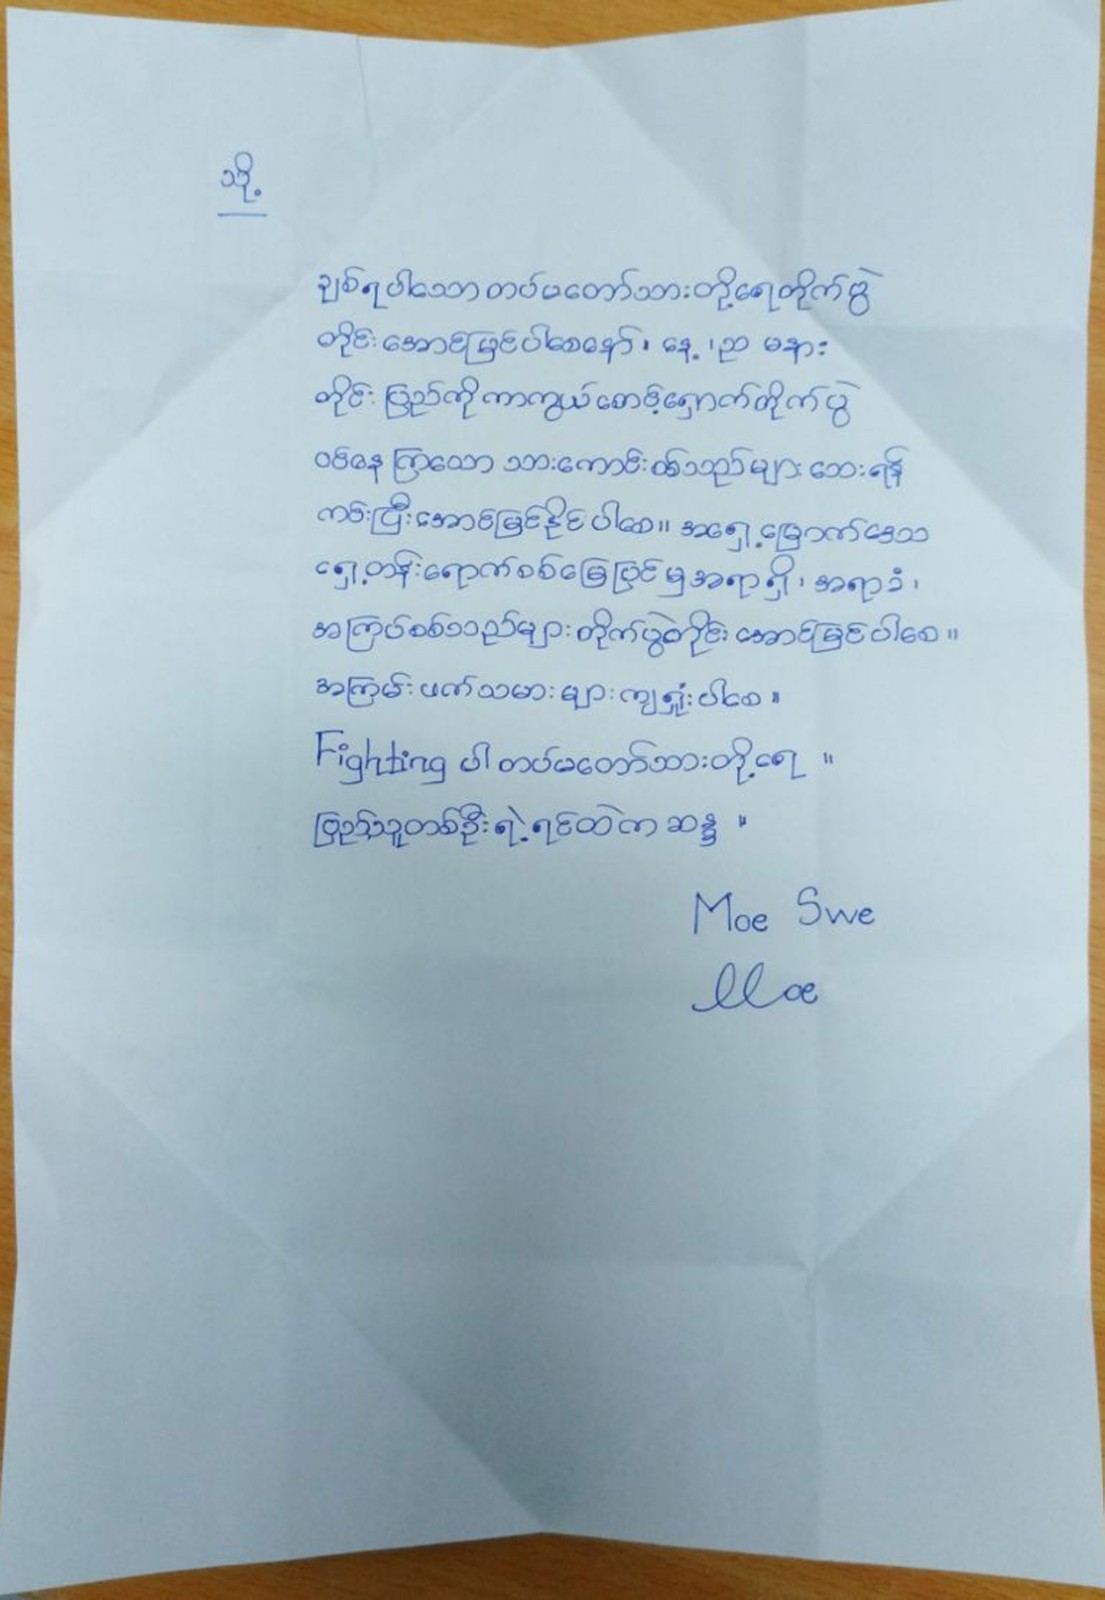 သို့
ချစ်ရပါသော တပ်မတော်သားတို့ရေတိုက်ပွဲ
တိုင်းအောင်မြင်ပါစေနော်၊ နေ့၊ည မနား
တိုင်းပြည်ကိုကာကွယ်စောင့်ရှောက်တိုက်ပွဲ
ဝင်နေကြသော သားကောင်းစစ်သည်များဘေးရန်
ကင်းပြီးအောင်မြင်နိုင်ပါစေ။ အရှေ့မြောက်ဒေသ
ရှေ့တန်းရောက်စစ်မြေပြင်မှအရာရှိ၊ အရာခံ၊
အကြပ်စစ်သည်များ တိုက်ပွဲတိုင်း အောင်မြင်ပါစေ။
အကြမ်းဖက်သမားများကျရှုံးပါစေ။
Fighting ပါ တပ်မတော်သားတို့ရေ ။
ပြည်သူတစ်ဦးရဲ့ရင်ထဲကဆန္ဒ ။
Moe Swe
Moe